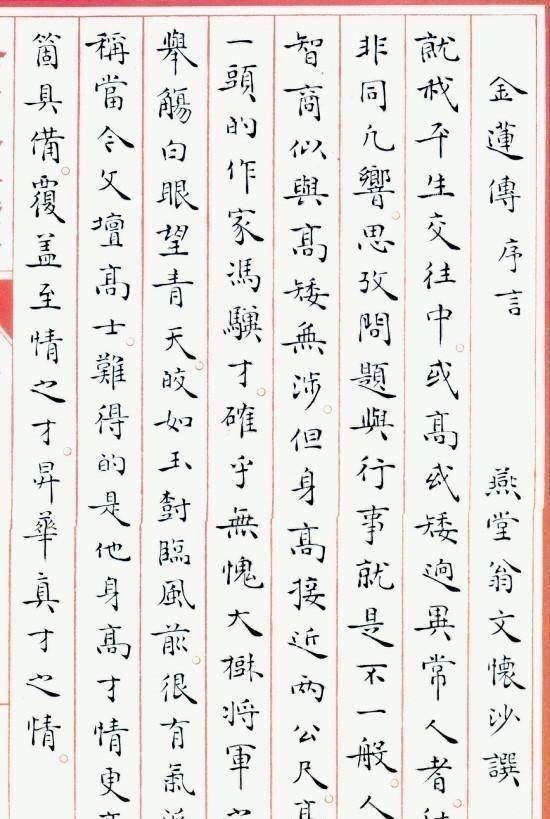 金蓮傳 序言 燕堂翁文懷沙譔
就我平生交往中。或高或矮迥異常人者。
非同凡響。思攷問題與行事就是不一般。人
智商似與高矮無涉。但身高接近两公尺
一頭的作家馮驥才。確乎無愧大樹將軍
舉觴白眼望青天。皎如玉樹臨風前。很有氣
稱當今文壇高士。難得的是他身高才情更
箇具備覆盖至情之才。昇華真才之情。